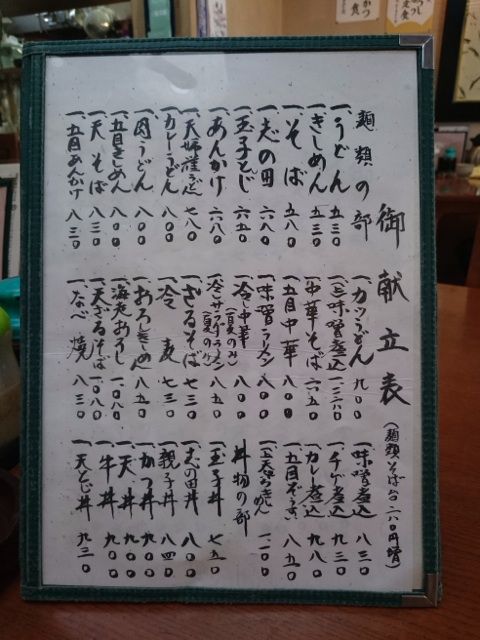 御献立表
(麺類そば台
麺類の部
一、うどん 五三〇
一、きしめん 五三〇
一、そば 五八〇
一、志の田 六八〇
一、玉子とじ 六五〇
一、あんかけ 六八〇
一、カレーうどん 七八〇
一、肉うどん 八〇〇
一、五目きしめん 八〇〇
一、天そば 八三〇
一、五目あんかけ 八三〇
一、カツうどん 九〇〇
味噌煮込
一、中華そば 六五〇
一、五目中華 八〇〇
一、味噌ラーメン 八〇〇
一、冷し中華(夏のみ) 八〇〇
冷しサラダラーメン(夏のみ) 八五〇
一、ざるそば 七三〇
一、冷麦 七三〇
一、おろしきしめん 八五〇
一、海老おろし 一、〇八〇
一、天ざるそば 一、〇八〇
一、なべ焼 八三〇
一、味噌煮込 八三〇
一、チゲ煮込 九三〇
一、カレー煮込 九八〇
一、五目ぞうすい 八五〇
丼物の部
一、玉子丼 七五〇
一、志の田丼 八〇〇
一、親子丼 八四〇
一、かつ丼 九〇〇
一、天丼 九〇〇
一、牛丼 九〇〇
一、天とじ丼 九三〇